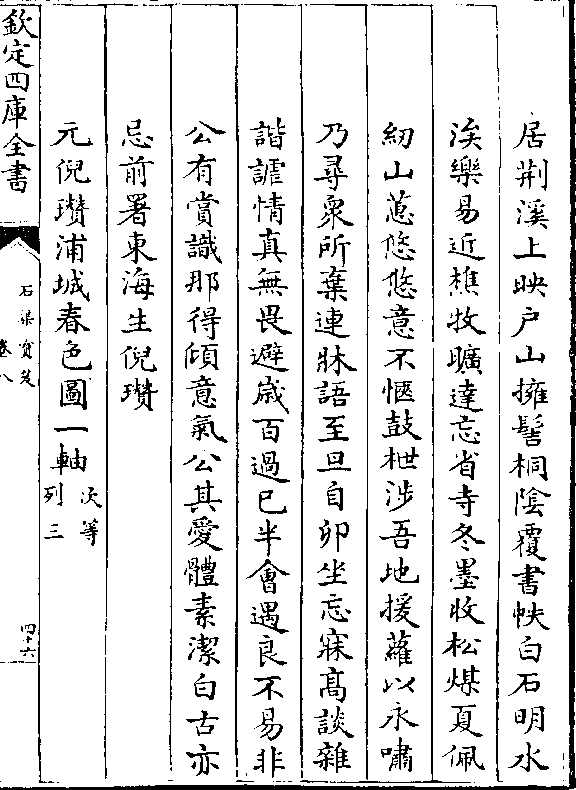 居荆溪上映户山擁髻桐陰覆書帙白石明水
涘樂易近樵牧曠達忘省寺冬墨收松煤夏佩
紉山蕙悠悠意不愜鼓枻涉吾地援蘿以永嘯
乃尋衆所棄連牀語至旦自卯坐忘寐髙談雜
諧謔情真無畏避嵗百過已半會遇良不易非
公有賞識那得傾意氣公其愛體素潔白古亦
忌前署東海生倪瓚
元倪瓚浦城春色圖一軸 次等
列三
欽定四庫全書
石渠寳笈
卷八
四十六